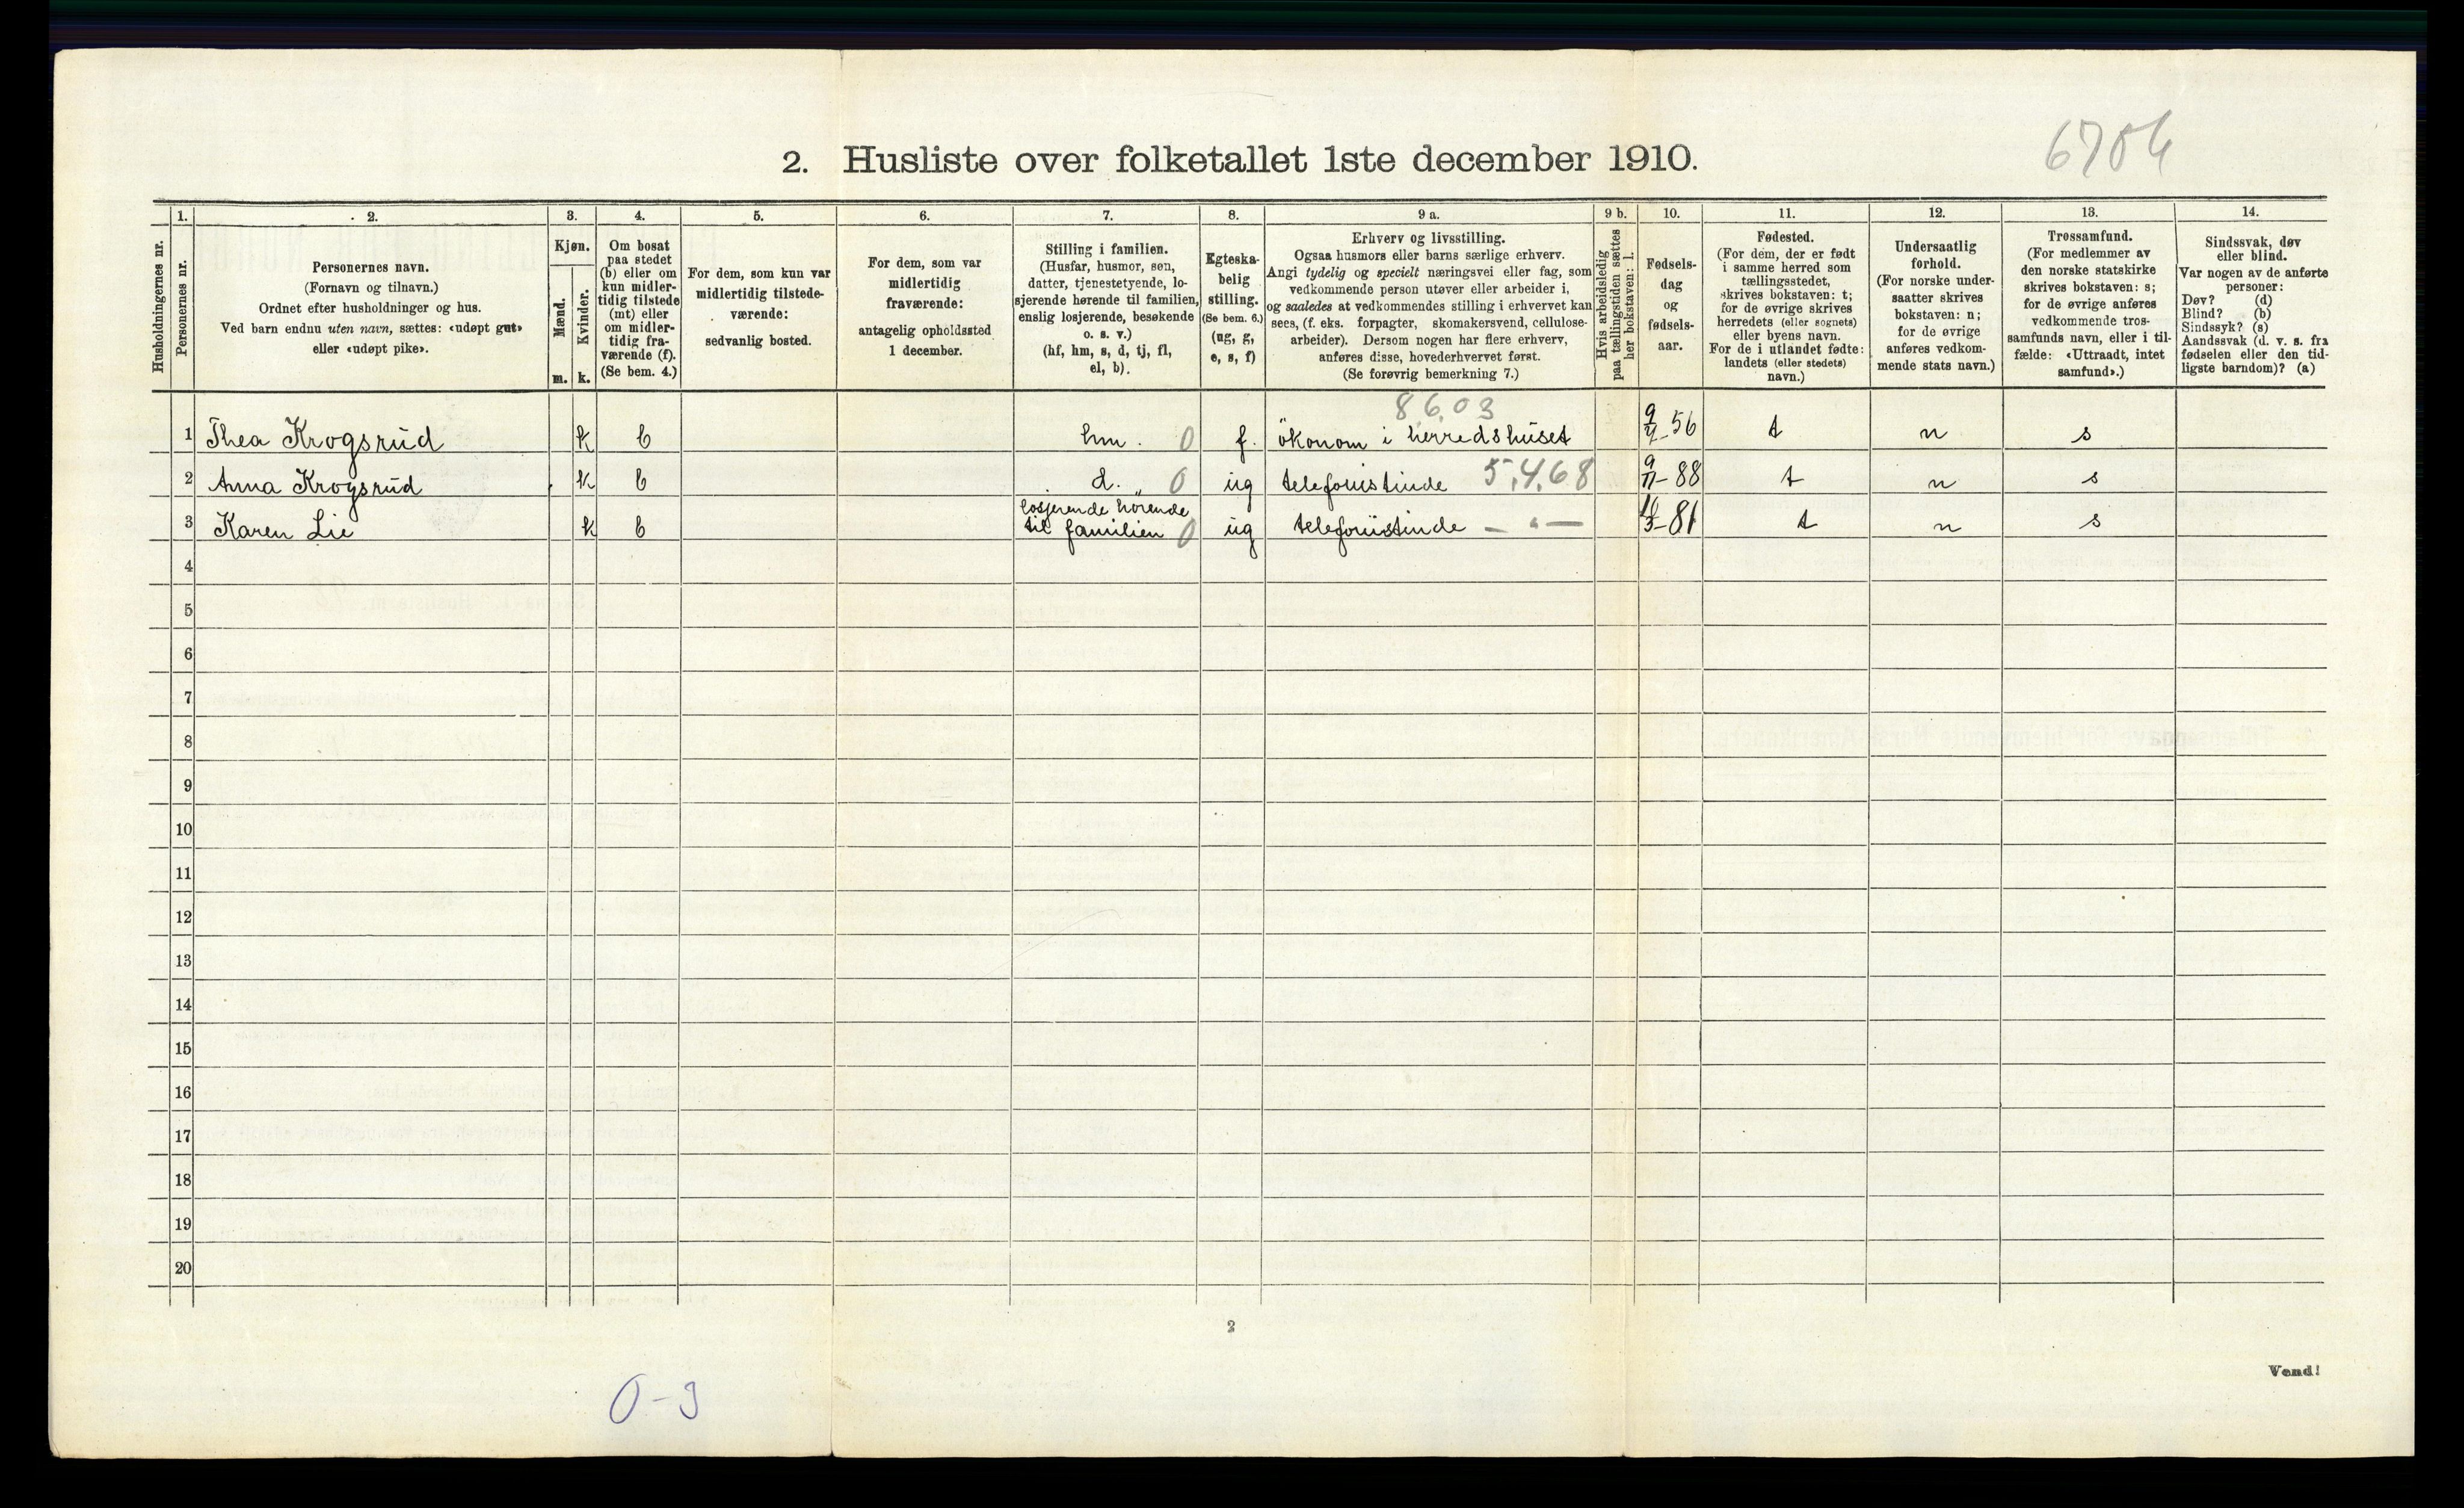 6704
2. Husliste over folketallet 1ste december 1910.
Husholdningernes nr.
1.
Personernes nr.
2.
Personernes navn.
(Fornavn og tilnavn.)
Ordnet efter husholdninger og hus.
Ved barn endnu uten navn, sættes: «udøpt gut»
eller «udøpt pike».
3.
Kjøn.
Mænd.
m.
Kvinder.
k.
4.
Om bosat
paa stedet
(b) eller om
kun midler-
tidig tilstede
(mt) eller
om midler-
tidig fra-
værende (f).
(Se bem. 4.)
5.
For dem, som kun var
midlertidig tilstede-
værende:
sedvanlig bosted.
6.
For dem, som var
midlertidig
fraværende:
antagelig opholdssted
1 december.
7.
Stilling i familien.
(Husfar, husmor, søn,
datter, tjenestetyende, lo-
sjerende hørende til familien,
enslig losjerende, besøkende
o. s. v.)
(hf, hm, s, d, tj, fl,
el, b).
8.
Egteska-
belig
stilling.
(Se bem. 6.)
(ug, g,
e, s, f)
9 a.
Erhverv og livsstilling.
Ogsaa husmors eller barns særlige erhverv.
Angi tydelig og specielt næringsvei eller fag, som
vedkommende person utøver eller arbeider i,
og saaledes at vedkommendes stilling i erhvervet kan
sees, (f. eks. forpagter, skomakersvend, cellulose-
arbeider). Dersom nogen har flere erhverv,
anføres disse, hovederhvervet først.
(Se forøvrig bemerkning 7.)
9 b.
Hvis arbeidsledig
paa tællingstiden sættes
her bokstaven: l.
10.
Fødsels-
dag
og
fødsels-
aar.
11.
Fødested.
(For dem, der er født
i samme herred som
tællingsstedet,
skrives bokstaven: t;
for de øvrige skrives
herredets (eller sognets)
eller byens navn.
For de i utlandet fødte:
landets (eller stedets)
navn.)
12.
Undersaatlig
forhold.
(For norske under-
saatter skrives
bokstaven: n;
for de øvrige
anføres vedkom-
mende stats navn.)
13.
Trossamfund.
(For medlemmer av
den norske statskirke
skrives bokstaven: s;
for de øvrige anføres
vedkommende tros-
samfunds navn, eller i til-
fælde: «Uttraadt, intet
samfund».)
14.
Sindssvak, døv
eller blind.
Var nogen av de anførte
personer:
Døv? (d)
Blind? (b)
Sindssyk? (s)
Aandssvak (d. v. s. fra
fødselen eller den tid-
ligste barndom)? (a)
8603
1 Thea Krogsrud k b hm. 0 f. økonom i herredshuset 9/4-56 t n s
2 Anna Krogsrud k b d. „ 0 ug telefonistinde 5,4,68 9/11-88 t n s
3 Karen Lie k b losjerende hørende
til familien 0 ug telefonistinde — " — 16/3-81 t n s
4
5
6
7
8
9
10
11
12
13
14
15
16
17
18
19
20
2
Vend!
0-3